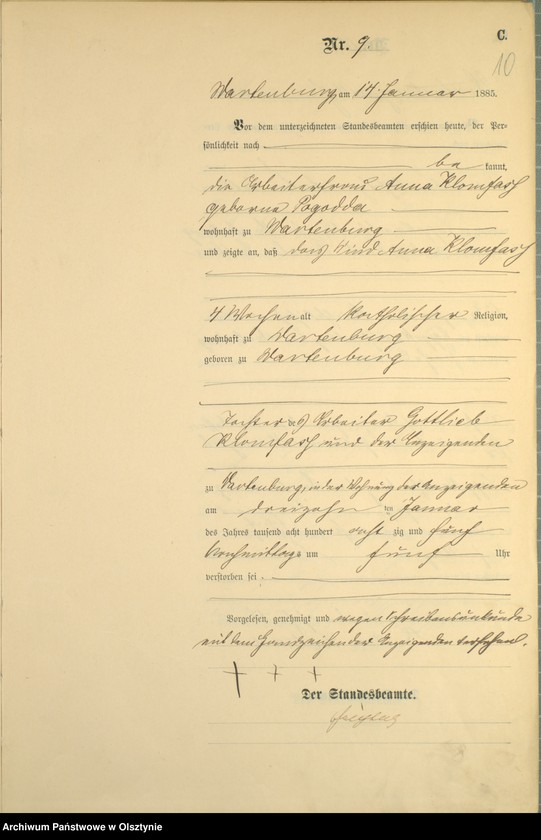 C.
Nr. 9.
10
Wartenburg, am 14. Januar 1885.
Vor dem unterzeichneten Standesbeamten erschien heute, der Per-
sönlichkeit nach
be kannt,
die Arbeiterfrau Anna Klomfaß
geborne Pogodda
wohnhaft zu Wartenburg
und zeigte an, daß das Kind Anna Klomfaß
4 Wochen alt katholischer Religion,
wohnhaft zu Wartenburg
geboren zu Wartenburg
Tochter des Arbeiter Gottlieb
Klomfaß und der Anzeigenden
zu Wartenburg, in der Wohnung der Anzeigenden
am dreizehn ten Januar
des Jahres tausend acht hundert acht zig und fünf
Nachmittags um fünf Uhr
verstorben sei.
Vorgelesen, genehmigt und wegen Schreibensunkunde
mit dem Handzeichen der Anzeigenden versehen.
+ + +
Der Standesbeamte.
Archiwum Państwowe w Olsztynie